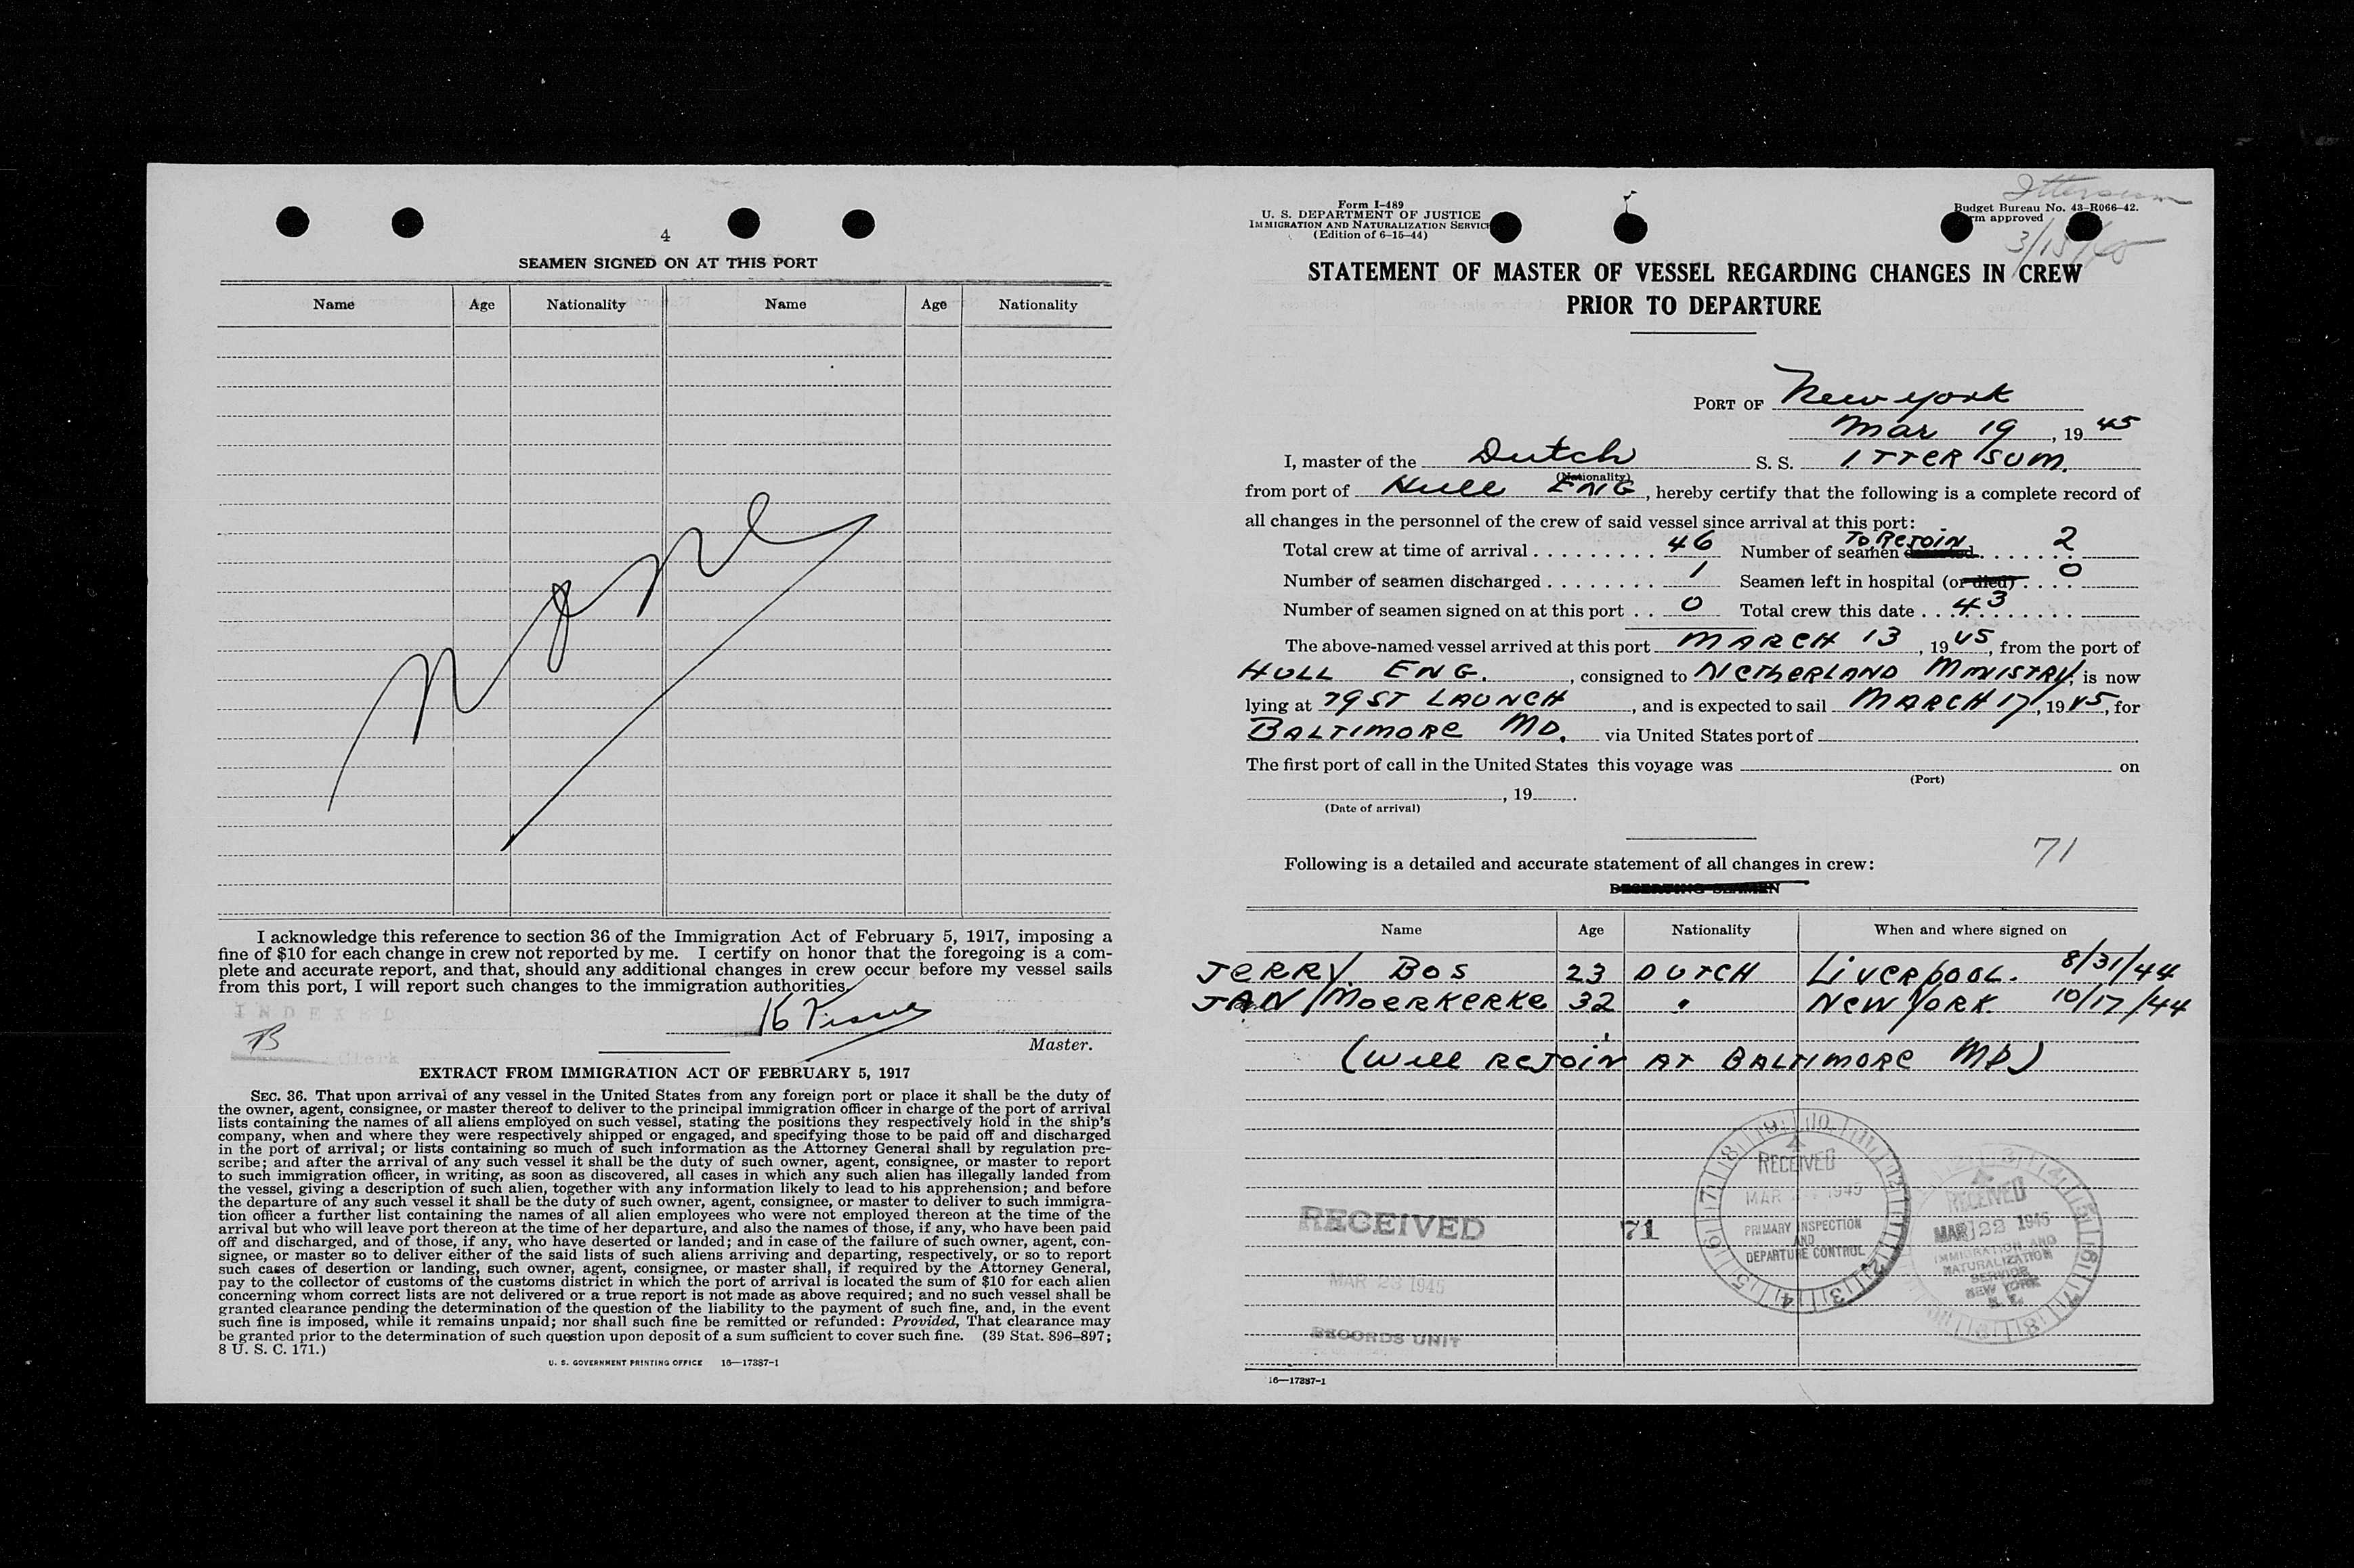 4
SEAMEN SIGNED ON AT THIS PORT
Name Age Nationality Name Age Nationality
None
I acknowledge this reference to section 36 of the Immigration Act of February 5, 1917, imposing a
fine of $10 for each change in crew not reported by me. I certify on honor that the foregoing is a com-
plete and accurate report, and that, should any additional changes in crew occur before my vessel sails
from this port, I will report such changes to the immigration authorities.
INDEXED
Clerk
Master.
EXTRACT FROM IMMIGRATION ACT OF FEBRUARY 5, 1917
SEC. 36. That upon arrival of any vessel in the United States from any foreign port or place it shall be the duty of
the owner, agent, consignee, or master thereof to deliver to the principal immigration officer in charge of the port of arrival
lists containing the names of all aliens employed on such vessel, stating the positions they respectively hold in the ship's
company, when and where they were respectively shipped or engaged, and specifying those to be paid off and discharged
in the port of arrival; or lists containing so much of such information as the Attorney General shall by regulation pre-
scribe; and after the arrival of any such vessel it shall be the duty of such owner, agent, consignee, or master to report
to such immigration officer, in writing, as soon as discovered, all cases in which any such alien has illegally landed from
the vessel, giving a description of such alien, together with any information likely to lead to his apprehension; and before
the departure of any such vessel it shall be the duty of such owner, agent, consignee, or master to deliver to such immigra-
tion officer a further list containing the names of all alien employees who were not employed thereon at the time of the
arrival but who will leave port thereon at the time of her departure, and also the names of those, if any, who have been paid
off and discharged, and of those, if any, who have deserted or landed; and in case of the failure of such owner, agent, con-
signee, or master so to deliver either of the said lists of such aliens arriving and departing, respectively, or so to report
such cases of desertion or landing, such owner, agent, consignee, or master shall, if required by the Attorney General,
pay to the collector of customs of the customs district in which the port of arrival is located the sum of $10 for each alien
concerning whom correct lists are not delivered or a true report is not made as above required; and no such vessel shall be
granted clearance pending the determination of the question of the liability to the payment of such fine, and, in the event
such fine is imposed, while it remains unpaid; nor shall such fine be remitted or refunded: Provided, That clearance may
be granted prior to the determination of such question upon deposit of a sum sufficient to cover such fine. (39 Stat. 896-897;
8 U. S. C. 171.)
U. S. GOVERNMENT PRINTING OFFICE 16—17387-1
Form I-489
U. S. DEPARTMENT OF JUSTICE
IMMIGRATION AND NATURALIZATION SERVICE
(Edition of 6-15-44)
Ittersum
Budget Bureau No. 43-R066-42.
approved
3/15/45
STATEMENT OF MASTER OF VESSEL REGARDING CHANGES IN CREW
PRIOR TO DEPARTURE
PORT OF New york
Mar 19, 1945
I, master of the Dutch S. S. ITTERSUM.
(Nationality)
from port of Hull ENG, hereby certify that the following is a complete record of
all changes in the personnel of the crew of said vessel since arrival at this port:
Total crew at time of arrival 46 Number of seamen deserted TO REJOIN 2
Number of seamen discharged 1 Seamen left in hospital (or died) 0
Number of seamen signed on at this port 0 Total crew this date 43
The above-named vessel arrived at this port MARCH 13, 1945, from the port of
HULL ENG., consigned to NETHERLAND MINISTRY, is now
lying at 79 ST LAUNCH, and is expected to sail MARCH 17, 1945, for
BALTIMORE MD. via United States port of
The first port of call in the United States this voyage was on
(Port)
, 19 .
(Date of arrival)
71
Following is a detailed and accurate statement of all changes in crew:
DESERTING SEAMEN
Name Age Nationality When and where signed on
JERRY BOS 23 DUTCH LIVERPOOL. 8/31/44
JAN MOERKERKE 32 " NEW YORK 10/17/44
(WILL REJOIN AT BALTIMORE MD)
RECEIVED
MAR 1945
PRIMARY INSPECTION
AND
DEPARTURE CONTROL
RECEIVED
MAR 22 1945
IMMIGRATION AND
NATURALIZATION
SERVICE
NEW YORK
N. Y.
RECEIVED
71
MAR 23 1945
RECORDS UNIT
16—17387-1